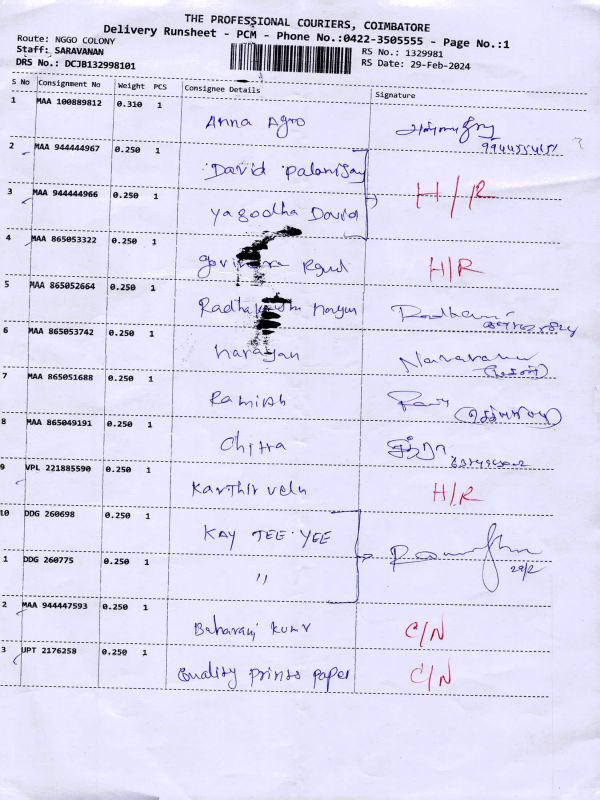 THE PROFESSIONAL COURIERS, COIMBATORE
Delivery Runsheet - PCM - Phone No.:0422-3505555 - Page No.:1
Route: NGGO COLONY
RS No.: 1329981
Staff: SARAVANAN
RS Date: 29-Feb-2024
DRS No.: DCJB132998101
S No Consignment No Weight PCS Consignee Details Signature
1 MAA 100889812 0.310 1 Anna Agro
2 MAA 944444967 0.250 1 David Palanisay
H/R
3 MAA 944444966 0.250 1 Yasodha David
4 MAA 865053322 0.250 1 H/R
5 MAA 865052664 0.250 1
6 MAA 865053742 0.250 1 narayan
7 MAA 865051688 0.250 1 Ramiah
8 MAA 865049191 0.250 1 Chitra சித்ரா
9 VPL 221885590 0.250 1 Karthir velu H/R
10 DDG 260698 0.250 1 KAY TEE YEE
1 DDG 260775 0.250 1 " 29/2
2 MAA 944447593 0.250 1 Kumr C/N
3 UPT 2176258 0.250 1 Quality prints paper C/N